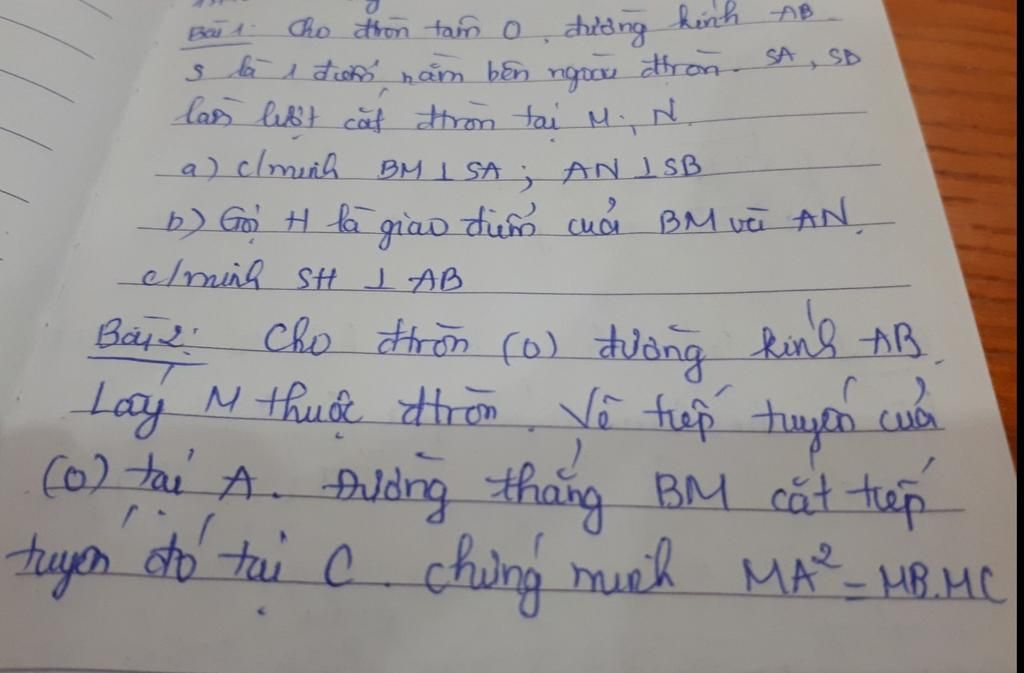 Bài 1: Cho đtròn tâm O, đường kính AB.
S là 1 điểm nằm bên ngoài đtròn. SA, SB
lần lượt cắt đtròn tại M, N.
a) c/minh BM ⊥ SA ; AN ⊥ SB
b) Gọi H là giao điểm của BM và AN.
c/minh SH ⊥ AB
Bài 2: Cho đtròn (O) đường kính AB.
Lấy M thuộc đtròn. Vẽ tiếp tuyến của
(O) tại A. Đường thẳng BM cắt tiếp
tuyến đó tại C. chứng minh MA² = MB.MC